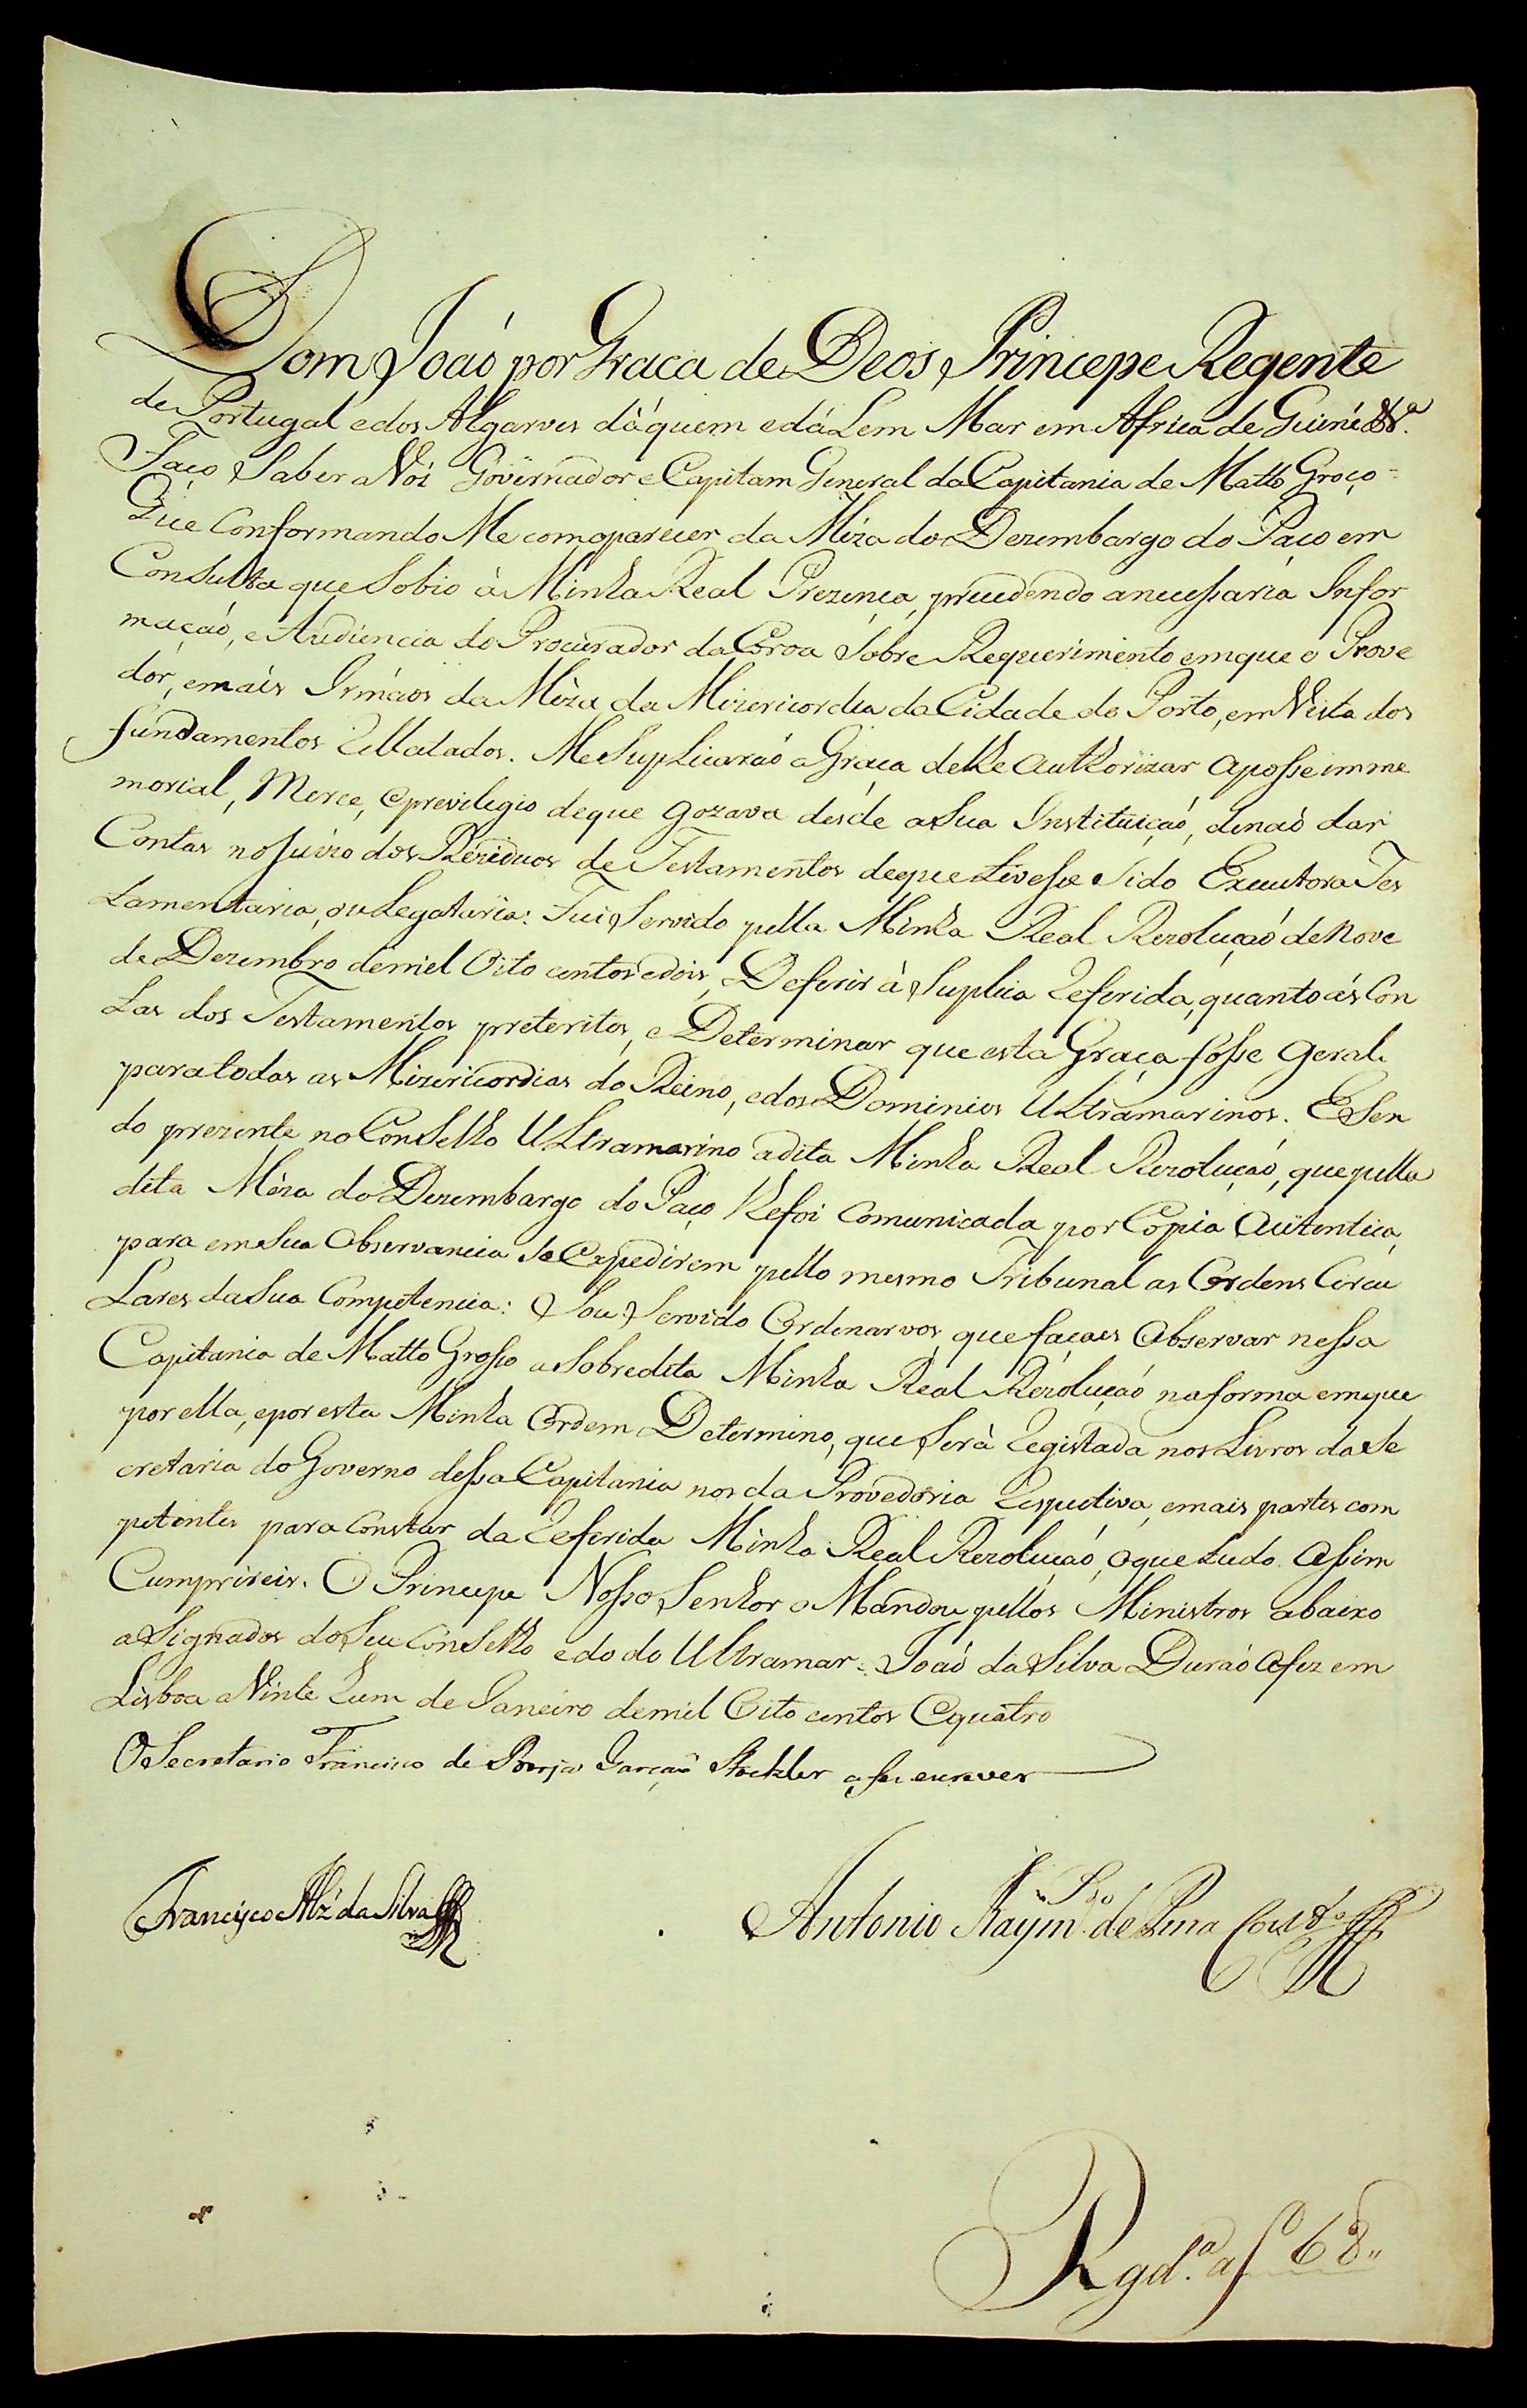 Dom Joaó por Graca de Deos Princepe Regente
de Portugal e dos Algarves dàquem e dáLem Mar em Africa de Guiné &&.ª
Faço Saber a Vós Governador e Capitam General da Capitania de Matto Groço =
Que Conformando Me com oparecer da Mêza do Dezembargo do Paço em
Consulta que Sobio à Minha Real Prezença, precedendo anecessaria Infor
maçaó, e Audiencia do Procurador da Coroa Sobre Requerimento emque o Prove
dór, emais Irmáos da Mêza da Mizericordia da Cidade do Porto, em Vista dos
fundamentos rellatados. Me Suplicaraó a Graça de lhe authorizar aposse imme
morial, Merce, eprevilegio deque gozava desde aSua Instituiçaó, denaó dar
Contas noJuizo dos Reziduos de Testamentos deque tivesse Sido Executora Tes
tamentaria, ou Legataria: Fui Servido pella Minha Real Rezoluçaó de Nove
de Dezembro demil Oito centos edois, Deferir à Suplica referida, quanto ás Con
tas dos Testamentos preteritos, e Determinar que esta Graça fosse geral.
paratodas as Mizericordias do Reino, edos Dominios Ultramarinos. E Sen
do prezente no Conselho Ultramarino adita Minha Real Rezoluçaó, que pella
dita Mêza do Dezembargo do Paço lhe foi Comunicada por Copia Autentica,
para emSua Observancia Se Expedirem pello mesmo Tribunal as Ordens Circu
Lares daSua Competencia: Sou Servido Ordenarvos, que façaes Observar nessa
Capitania de Matto Grosso a Sobredita Minha Real Rezoluçaó naforma emque
por ella, epor esta Minha Ordem Determino, que Serà registada nos Livros daSe
cretaria do Governo dessa Capitania nos da Provedoria respectiva, emais partes com
petentes para Constar da referida Minha Real Rezoluçaó, oque tudo assim
Cumprireis. O Princepe Nosso Senhor o Mandou pellos Ministros abaixo
aSignados do Seu Conselho e do do Ultramar. Joaó da Silva Duraó afez em
Lisboa a Vinte hum de Janeiro demil Oito centos Equatro
O Secretario Francisco de Borja Garçaó Stockler a fis escrever
Francisco Alz' da Silva
Antonio Raym.do de Pina Cout.o
Rgd.ª a f 68,,